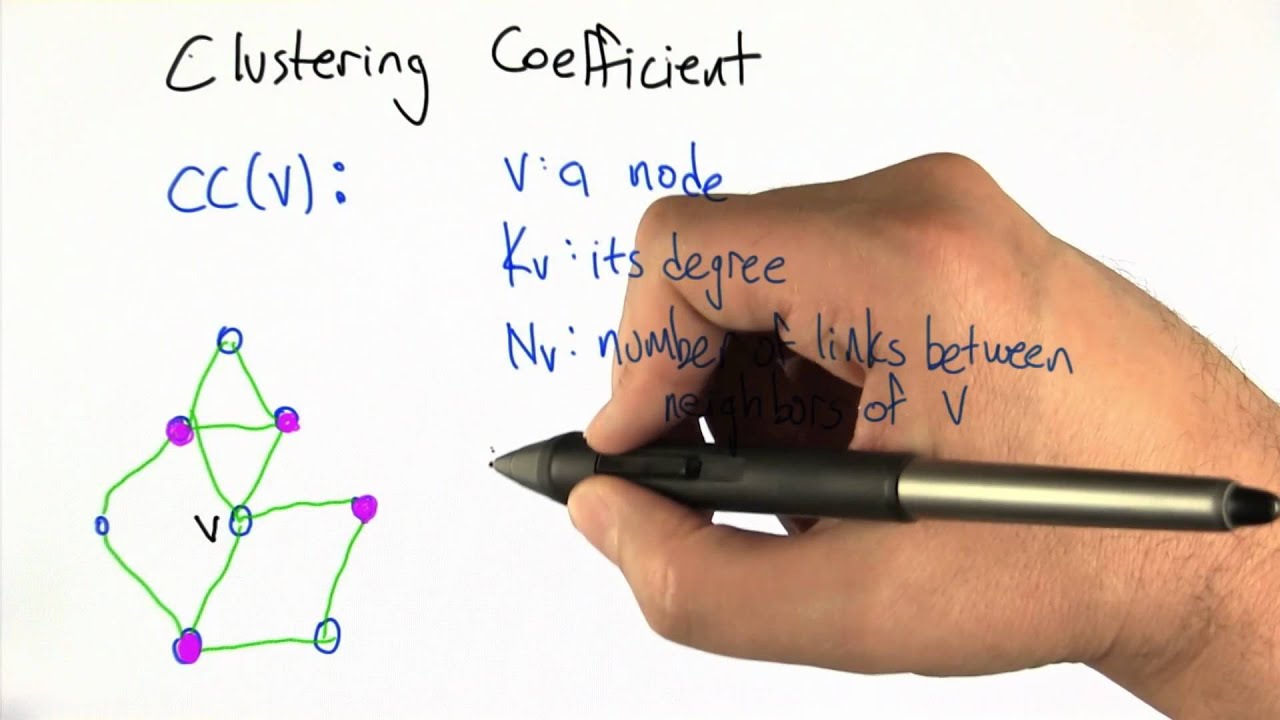 Clustering Coefficient
CC(V):
V: a node
Kv: its degree
Nv: number of links between
neighbors of V
V